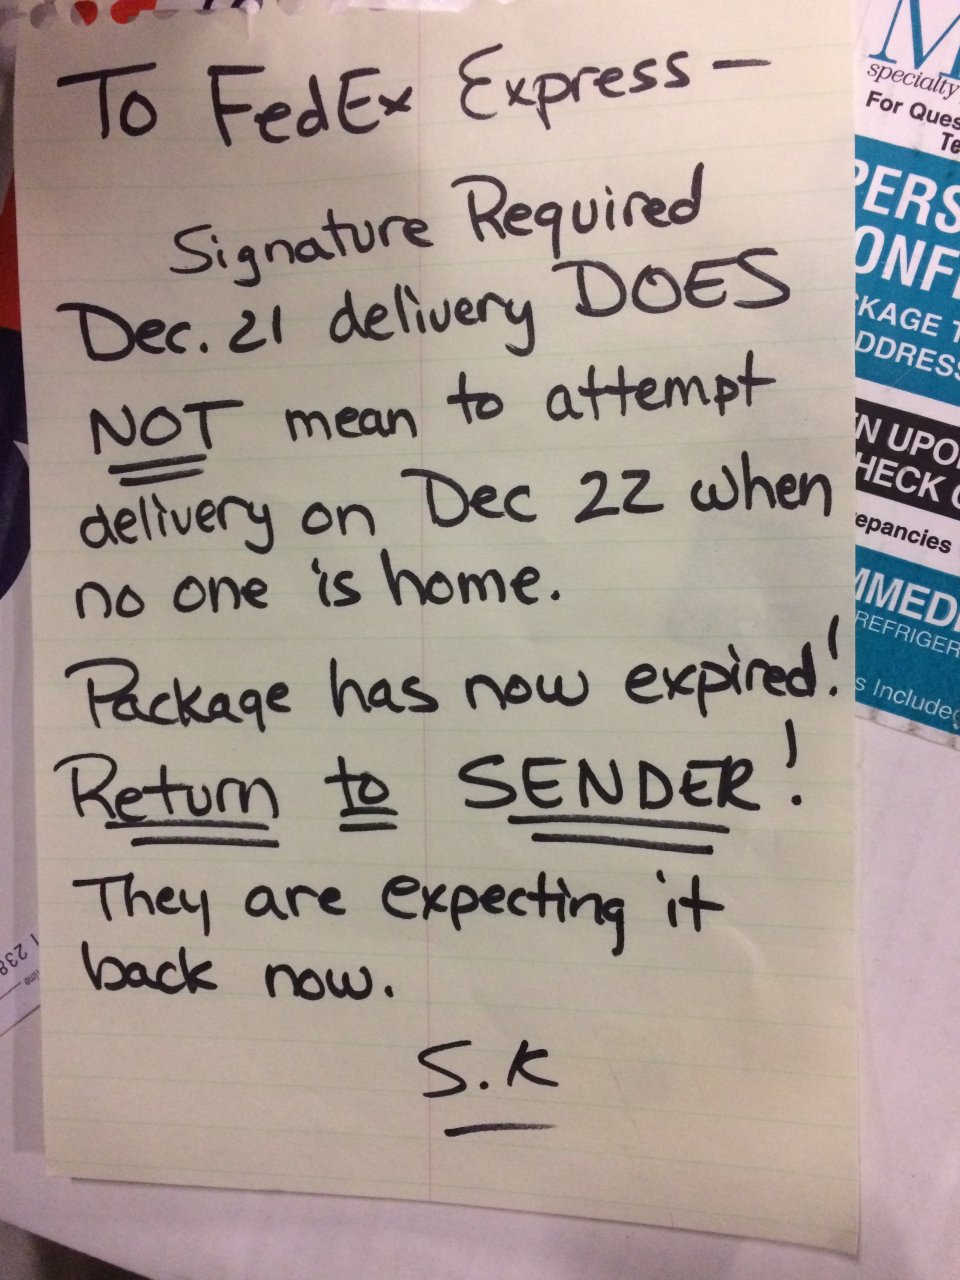 To FedEx Express—
Signature Required
Dec. 21 delivery DOES
NOT mean to attempt
delivery on Dec 22 when
no one is home.
Package has now expired!
Return to SENDER!
They are expecting it
back now.
S.K
M
specialty
For Ques
Te
PERS
ONF
KAGE T
DDRESS
N UPO
HECK
epancies
MMED
REFRIGER
s Include
1 238